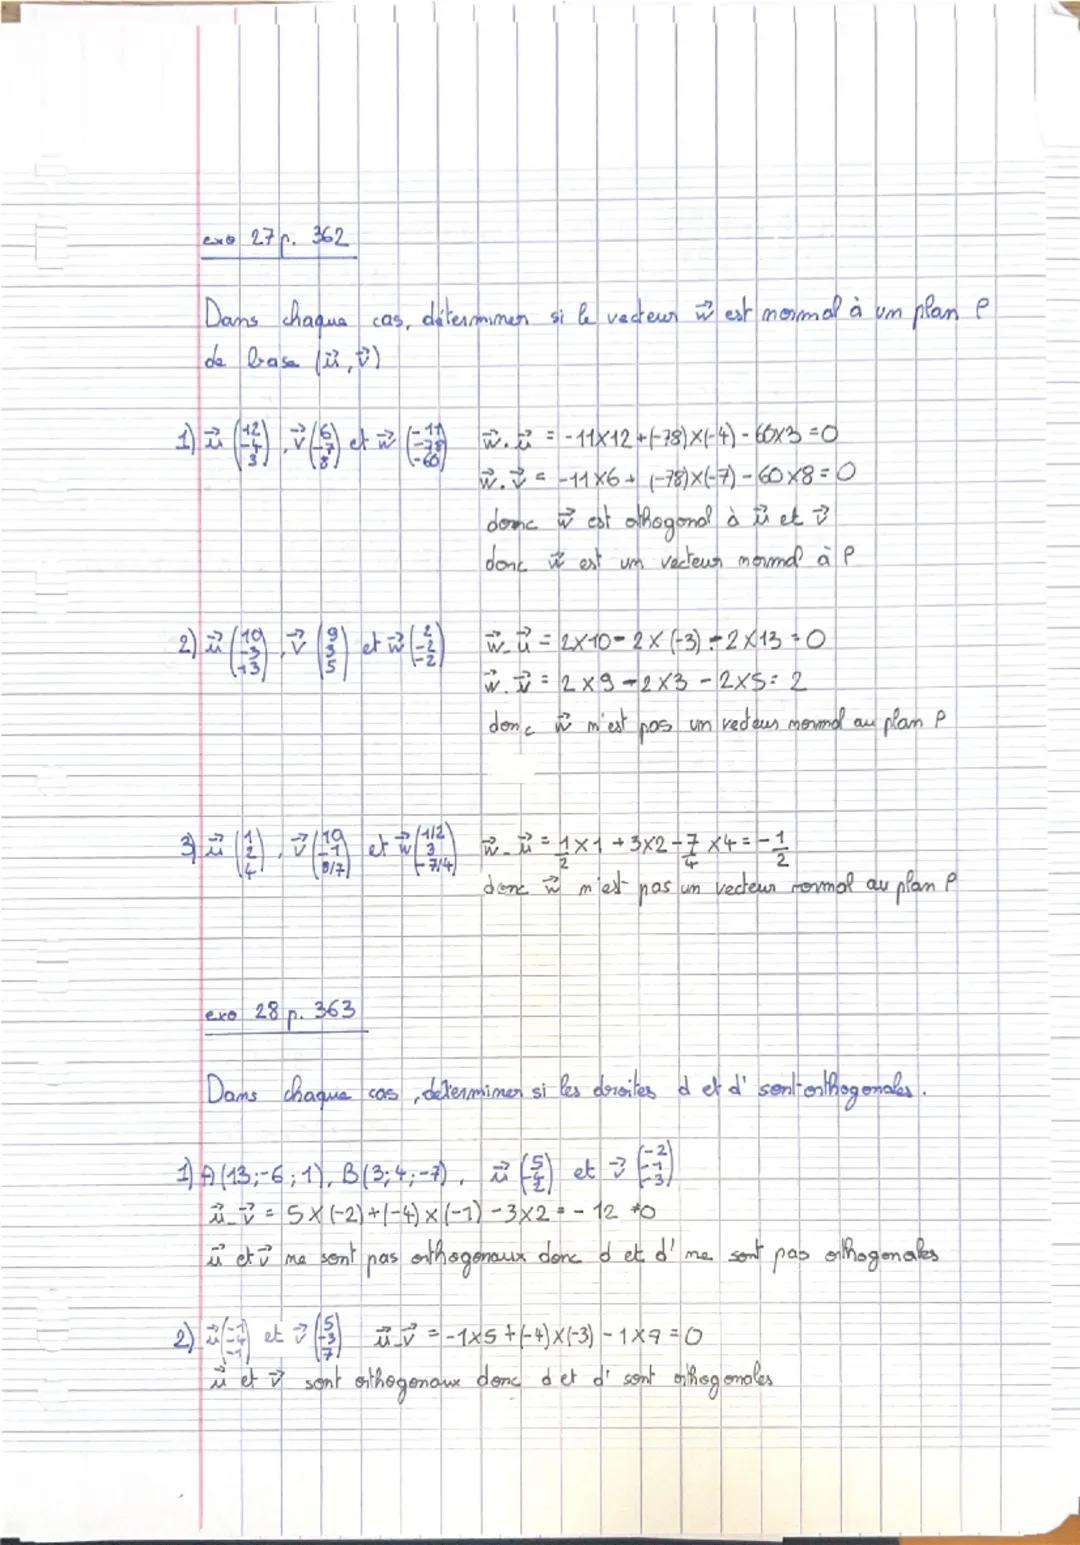 exo 27 p. 362
Dans chaque cas, déterminer si le vecteur w⃗ est normal à un plan P
de base (u⃗, v⃗)
1) u⃗ (12 -4 3), v⃗ (6 -7 8) et w⃗ (-11 -78 -60) w⃗. u⃗ = -11×12+(-78)×(-4)-60×3=0
w⃗. v⃗ = -11×6+ (-78)×(-7)-60×8=0
donc w⃗ est othogonal à u⃗ et v⃗
donc w⃗ est un vecteur normal à P
2) u⃗ (10 -3 13), v⃗ (9 3 5) et w⃗ (2 -2 -2) w⃗. u⃗ = 2×10-2×(-3)-2×13=0
w⃗. v⃗ = 2×9-2×3-2×5=2
donc w⃗ n'est pas un vecteur normal au plan P
3) u⃗ (1 2 4), v⃗ (10 -1 8/7) et w⃗ (1/2 3 -7/4) w⃗. u⃗ = 1/2 ×1 +3×2-7/4 ×4=-1/2
donc w⃗ n'est pas un vecteur normal au plan P
exo 28 p. 363
Dans chaque cas, déterminer si les droites d et d' sont orthogonales.
1) A(13;-6;1), B(3;4;-7), u⃗ (5 -4 2) et v⃗ (-2 -1 -3)
u⃗. v⃗ = 5×(-2)+(-4)×(-1)-3×2=-12 ≠0
u⃗ et v⃗ ne sont pas orthogonaux donc d et d' ne sont pas orthogonales
2) u⃗ (-1 -4 -1) et v⃗ (5 -3 7) u⃗. v⃗ = -1×5+(-4)×(-3)-1×7=0
u⃗ et v⃗ sont orthogonaux donc d et d' sont orthogonales